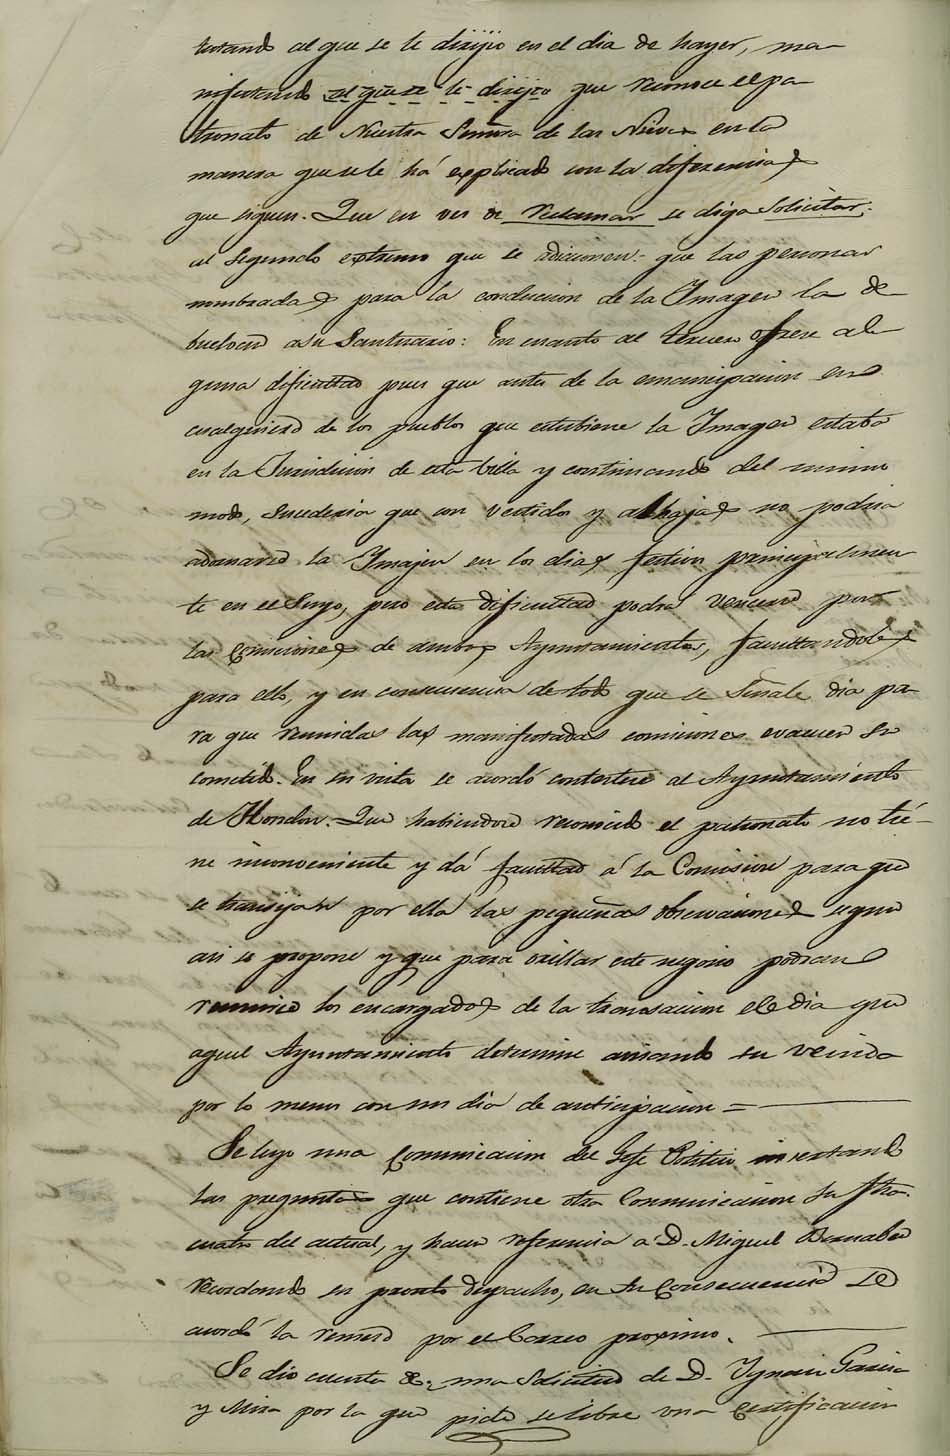 testando al que se le dirijio en el dia de hayer, ma-
nifestando al que se le dirijio que reconoce el pa-
tronato de Nuestra Señora de las Nieves en la
manera que se le há explicado con la diferencias
que siguen. Que en ves de reclamar se diga Solicitar;
al Segundo extremo que se adicionen- que las personas
nombradas para la conducion de la Imagen la de-
buelban a su Santuario: En cuanto al tercero ofrese al-
guna dificultad pues que antes de la emancipacion en
cualquiera de los pueblos que estubiese la Imagen estaba
en la Jurisdicion de esta billa y continuando del mismo
modo, Sucederia que con vestidos y alhajas no podria
adornarse la Imajen en los dias festivos principalmen
te en el Suyo, pero esta dificultad podrá vencerse por
las Comiciones de ambos Ayuntamientos, facultandoles
para ello, y en consecuencia de todo que se Señale dia pa-
ra que reunidas las manifestadas comiciones evacuen su
cometido. En su vista se acordó contestase al Ayuntamiento
de Hondon. Que habiendose reconocido el patronato no tie-
ne inconveniente y dá facultad á la Comision para que
se transijan por ella las pequeñas observaciones segun
asi se propone y que para orillar este negocio podran
reunirse los encargados de la transacion el dia que
aquel Ayuntamiento determine avisando su venida
por lo menos con un dia de anticipacion =
Se leyo una Comunicacion del Gefe Politico insertando
las preguntas que contiene otra Comunicacion su fha.
cuatro del actual, y hacen referencia a D. Miguel Bernabeu
recordando su pronto despacho, en su Consecuencia se
acordó la remesa por el Correo proximo.
Se dio cuenta de una Solicitud de D. Ygnacio Garcia
y Mira por la que pide se libre una Certificacion